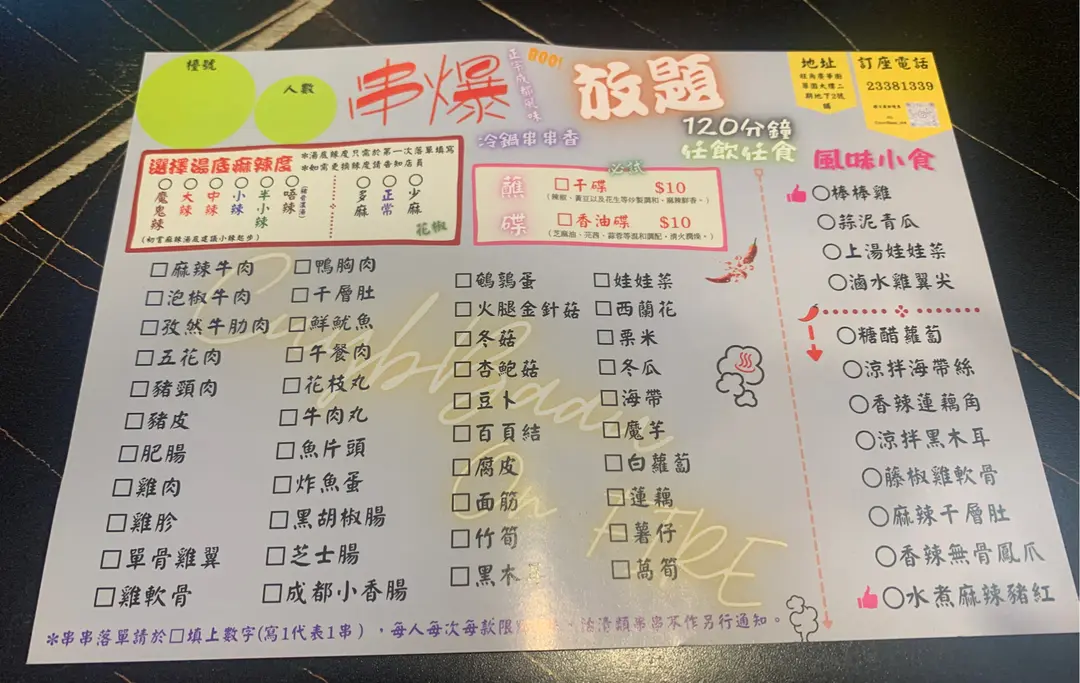 檯號
人數
串爆
BOO!
正宗成都風味
放題
冷鍋串串香
120分鐘
任飲任食
地址
旺角豪華園
二
期地下2號
舖
訂座電話
23381339
選擇湯底麻辣度
*湯底辣度只需於第一次落單填寫
*如需更換辣度請告知店員
魔鬼辣
大辣
中辣
小辣
半小辣
唔辣
多麻
正常
少麻
花椒
(初嘗麻辣湯底建議小辣起步)
必試
蘸碟
□干碟 $10
(辣椒、黃豆以及花生等炒製調和,麻辣鮮香。)
□香油碟 $10
(芝麻油、芫茜、蒜蓉等混和調配,清火潤燥。)
□麻辣牛肉
□泡椒牛肉
□孜然牛肋肉
□五花肉
□豬頸肉
□豬皮
□肥腸
□雞肉
□雞胗
□單骨雞翼
□雞軟骨
□鴨胸肉
□千層肚
□鮮魷魚
□午餐肉
□花枝丸
□牛肉丸
□魚片頭
□炸魚蛋
□黑胡椒腸
□芝士腸
□成都小香腸
□鵪鶉蛋
□火腿金針菇
□冬菇
□杏鮑菇
□豆卜
□百頁結
□腐皮
□面筋
□竹筍
□黑木
□娃娃菜
□西蘭花
□粟米
□冬瓜
□海帶
□魔芋
□白蘿蔔
□蓮藕
□薯仔
□萵筍
風味小食
○棒棒雞
○蒜泥青瓜
○上湯娃娃菜
○滷水雞翼尖
○糖醋蘿蔔
○涼拌海帶絲
○香辣蓮藕角
○涼拌黑木耳
○藤椒雞軟骨
○麻辣千層肚
○香辣無骨鳳爪
○水煮麻辣豬紅
On FIRE
*串串落單請於□填上數字(寫1代表1串),每人每次每款限 類串串不作另行通知。